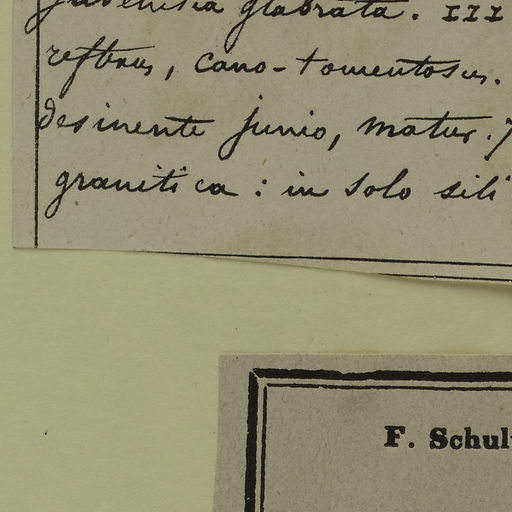 glabrata. III
reflexus, cano-tomentosus.
desinente junio, matur.
granitica : in solo sili
F. Schul